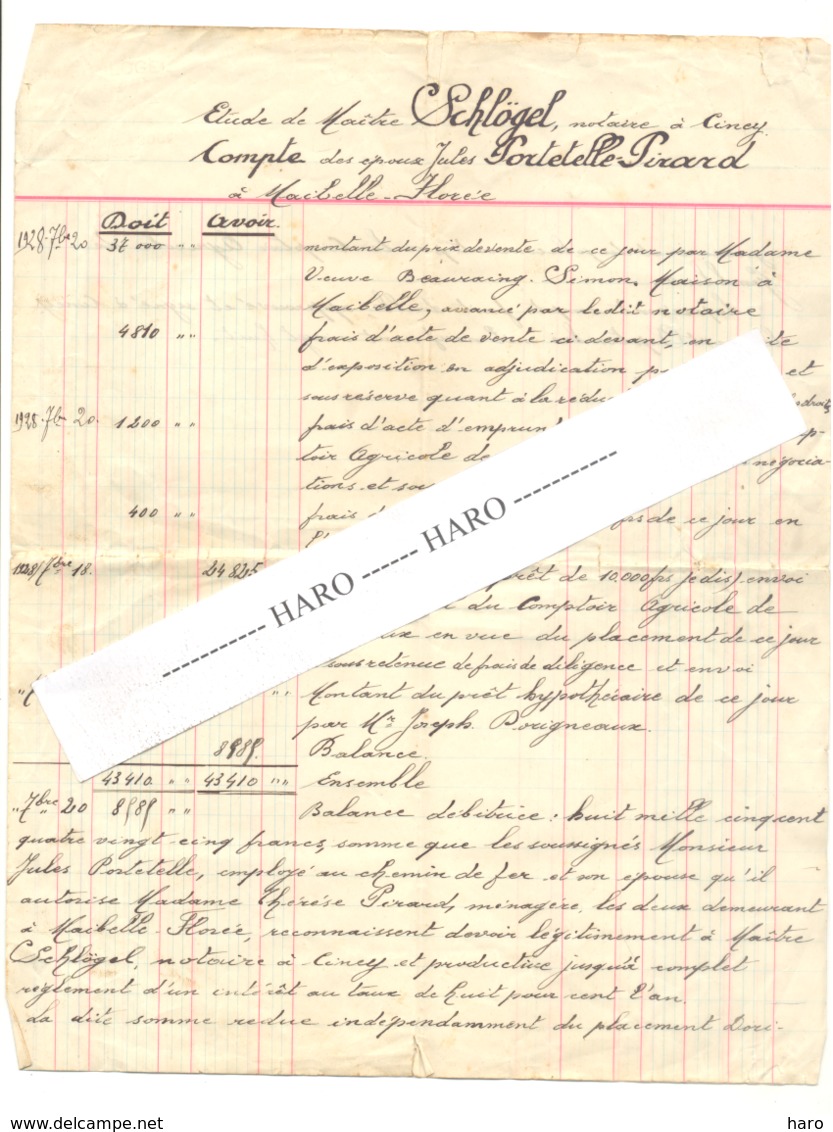 Etude de Maître Schlögel, notaire à Ciney.
Compte des epoux Jules Portetelle-Pirard
à Maibelle-Florée
Doit Avoir.
1928-7bre 20 37 000 " " montant du prix de vente de ce jour par Madame
Veuve Beauraing-Simon, Maison à
Maibelle, avancé par le dit notaire
4810 " " frais d'acte de vente ci devant, en
d'exposition en adjudication et
sous réserve quant à la
1928-7b 20. 1200 " " frais d'acte
toir Agricole de négocia-
tions et
400 " " frais de ce jour en
1928/7bre 18. 24825 prêt de 10.000 frs je dis) envoi
du Comptoir Agricole de
en vue du placement de ce jour
sous retenue de frais de diligence et envoi
" " Montant du prêt hypothécaire de ce jour
par Mr Joseph Dorigneaux.
8585. Balance.
43410 " " 43410 " " Ensemble
" 7bre 20 8585 " " Balance débitrice : huit mille cinqcent
quatre vingt cinq francs, somme que les soussignés Monsieur
Jules Portetelle, employé au chemin de fer et son epouse qu'il
autorise Madame Thérèse Pirard, ménagère, les deux demeurant
à Maibelle-Florée, reconnaissent devoir légitimement à Maître
Schlögel, notaire à Ciney et productive jusqu'à complet
reglement d'un intérêt au taux de huit pour cent l'an.
La dite somme redue independamment du placement Dori-
---------- HARO ------ HARO ----------
www.delcampe.net
haro